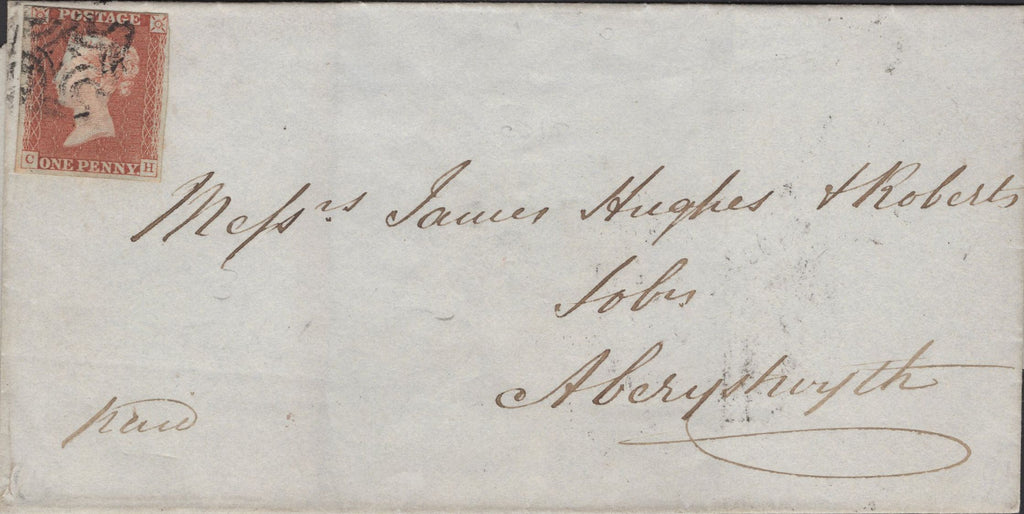 POSTAGE
C ONE PENNY H
Messrs James Hughes & Roberts
Solrs
Aberystwyth
Paid